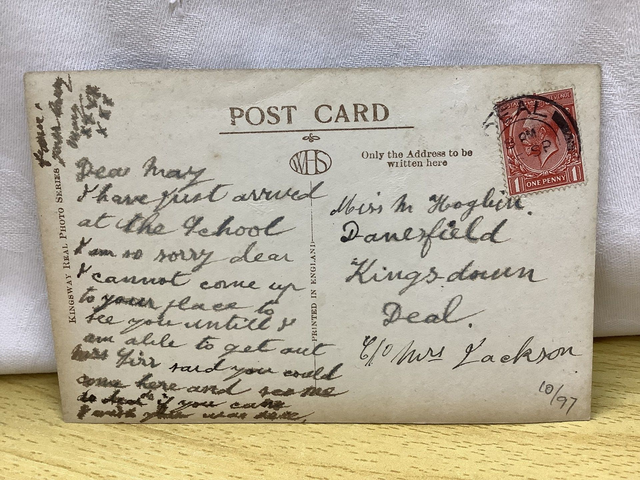 POST CARD
WHS
Only the Address to be
written here
DEAL
PM
SP
1 ONE PENNY 1
KINGSWAY REAL PHOTO SERIES
PRINTED IN ENGLAND
xxxx
xxx
Dear May
I have just arrived
at the School
I am so sorry dear
I cannot come up
to your place to
see you untill I
am able to get out
said you could
come here and see me
if you can
I wish you was here,
Miss M Hogbin.
Danesfield
Kingsdown
Deal.
C/o Mrs Jackson
10/97